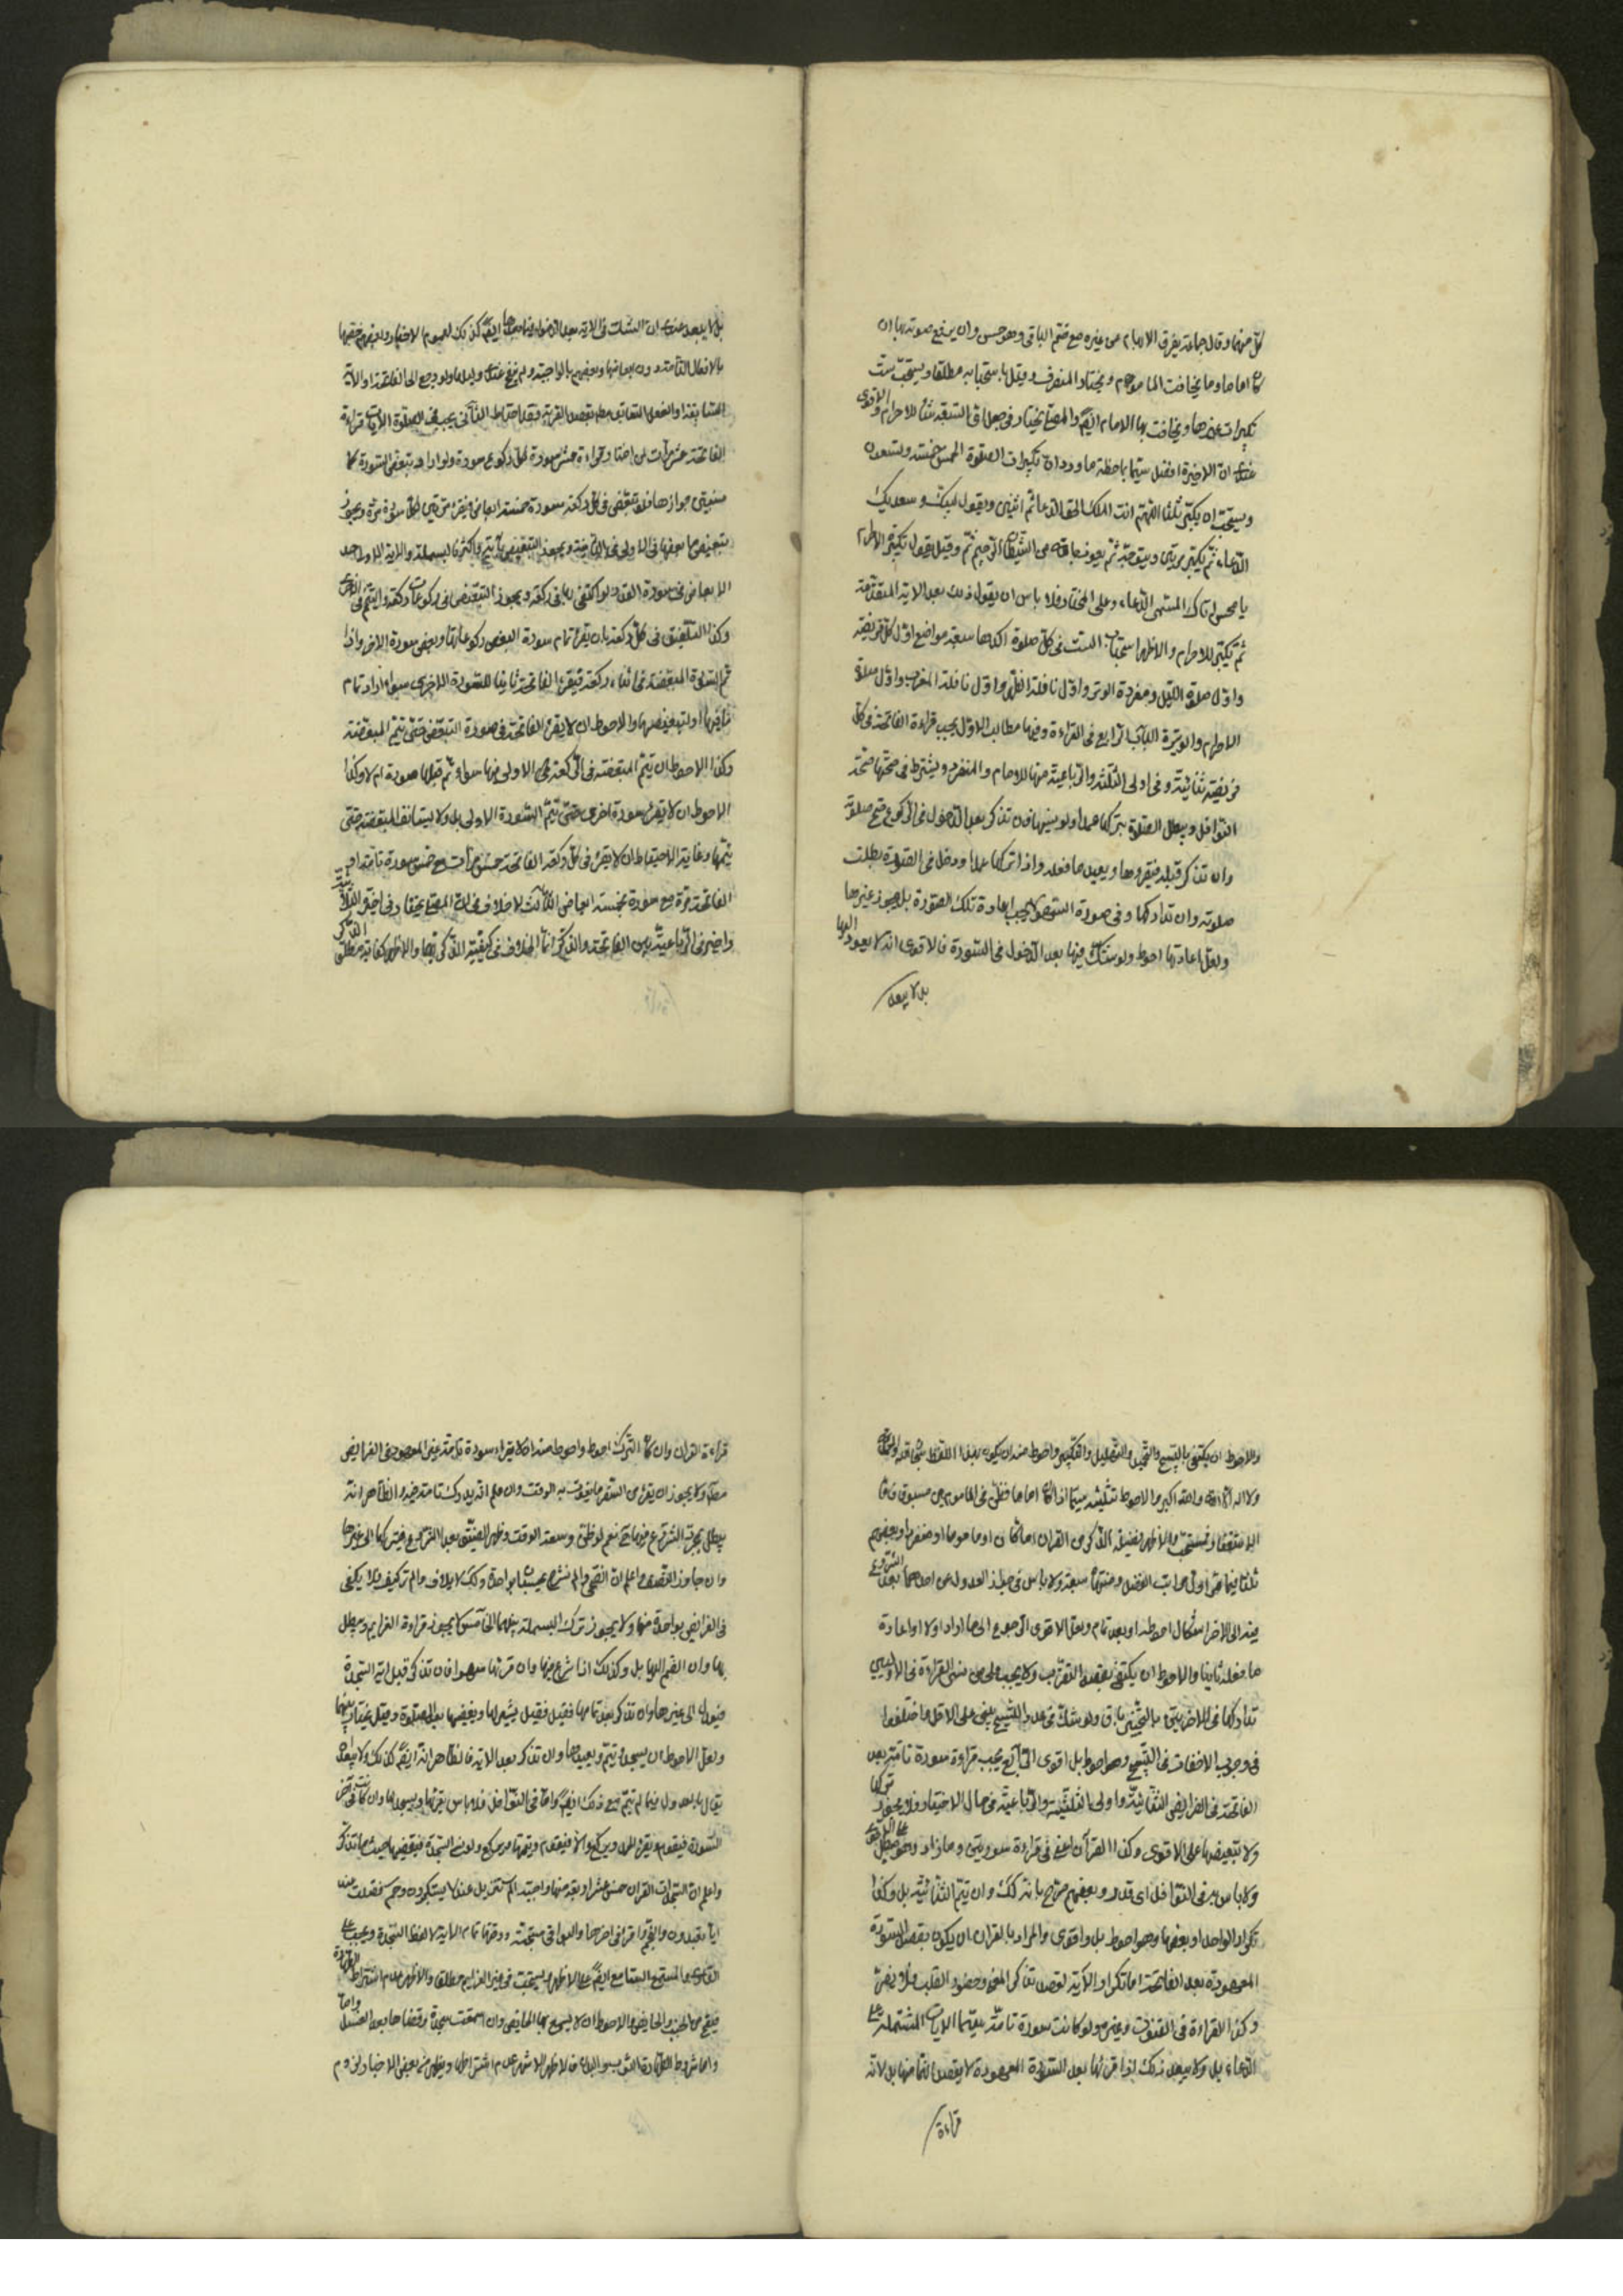 كل منها وقال جماعة يفرق الابهام من غيره مع ضم الباقى وهو حسن وان يرفع صوته بها ان
كان اماما وما يخافت الماموم ويختار المنفرد وقيل باستحبابه مطلقا ويستحب ست
تكبيرات غيرها ويخافت بها الامام ايضا والمصلى يختار فى جعل اى السبعة شاء للاحرام والاقوى
عندى ان الاخيرة افضل سيما بملاحظة ما ورد ان تكبيرات الصلوة الخمس خمسة وتسعون
ويستحب ان يكبر ثلثا اللهم انت الملك الحق الدعا ثم اثنين ويقول لبيك وسعديك
الدعاء ثم يكبر مرتين ويتوجه ثم يعوذ بالله من الشيطان الرجيم ثم وقيل يقول تكبيرة الاحرام
يا محسن اتاك المسئ الدعاء وعلى المختار فلا باس ان يقول ذلك بعد الاية المتقدمة
ثم يكبر للاحرام والاظهر استحباب الست فى كل صلوة اكدها سبعة مواضع اول كل فريضة
واول صلوة الليل ومفردة الوتر واول نافلة الظهر واول نافلة المغرب واول صلوة
الاحرام والوتيرة الباب الرابع فى القراءة وفيها مطالب الاول يجب قراءة الفاتحة فى كل
فريضة ثنائية وفى اولى الثلثية والرباعية منها للامام والمنفرد ويشترط فى صحتها صحة
النوافل ويبطل الصلوة بتركها عمدا ولو نسيها فان تذكر بعد الدخول فى الركوع صح صلوته
وان تذكر قبله فيقرءها ويعيد ما فعله واذا تركها عمدا ودخل فى السورة بطلت
صلوته وان تداركها وفى صورة السهو لا يجب اعادة تلك السورة بل يجوز غيرها
ولعل اعادتها احوط ولو شك فيها بعد الدخول فى السورة فالاقوى انه لا يعود اليها
بل لا يبعد
بل لا يبعد عندى ان الشك فى الاية بعد الدخول فيما بعدها ايضا كذلك لعموم الاخبار وبعضهم خصها
بالافعال التامة دون ابعاضها وبعضهم بالواجبة ولم يصح عندى دليلها ولو رجع الى الفاتحة او الاية
الفاتحة عشر مرات لمن اختار قراءة عشر سورة لكل ركوع سورة ولو اراد تبعض السورة كما
سيجئ جوازها فله تبعض فى كل ركعة سورة خمسة ابعاض فيقرء مرتين لكل سورة مرة ويجوز
وكذا التلفيق فى كل ركعة بان يقرء تمام سورة لبعض ركوعاتها وبعض سورة الاخر واذا
تم السورة المبعضة فى اثناء ركعة فيقرء الفاتحة ثانيا للسورة الاخرى سواء اراد تمام
ثانيها او تبعيضها والاحوط ان لا يقرء الفاتحة فى صورة التبعض حتى يتم المبعضة
وكذا الاحوط ان يتم المبعضة فى الركعة الاولى منها سواء تم قبلها سورة ام لا وكذا
الاحوط ان لا يقرء سورة اخرى حتى يتم السورة الاولى بل ولا يستانف المبعضة حتى
يتمها وغاية الاحتياط ان لا يقرء فى كل ركعة الفاتحة خمس مرات مع خمس سورة تامة او
الفاتحة مرة مع سورة بخمسة ابعاض الثالث لا خلاف فى ان المصلى مختار فى اخيرة الثلاثية
واخيرتى الرباعية بين الفاتحة والذكر انما الخلاف فى كيفية الذكر ايضا والاظهر كفاية مطلق الذكر
والاحوط ان يكتفى بالتسبيح والتحميد والتهليل والتكبير واحوط منه ان يكون بهذا اللفظ سبحان الله والحمد لله
ولا اله الا الله والله اكبر والاحوط تثليثه سيما اذا كان اماما فظن فى المامومين مسبوق فاما
الاستغفار فيستحب والاظهر افضلية الذكر من القران اماما كان او ماموما او منفردا وبعضهم
منه الى الاخر اشكال احوطه او بعد تمام ولعل الاقوى الرجوع الى ما اراد اولا او اعادة
ما فعله ثانيا والاحوط ان يكتفى بقصد التقرب ولا يجب على من نسى القراءة فى الاوليين
تداركها فى الاخيرتين بل التخيير باق ولو شك فى عدد التسبيح يبنى على الاقل واختلفوا
فى وجوب الاخفات فى التسبيح وهو احوط بل اقوى الرابع يجب قراءة سورة تامة بعد
الفاتحة فى الفرايض الثنائية واولى الثلثية والرباعية فى حال الاختيار فلا يجوز تركها
ولا تبعيضها على الاقوى وكذا القران اعنى قراءة سورتين وما زاد وهو مبطل على الاحوط
ولا باس به فى النوافل اى قدر وبعضهم صرح بانه ترك وان يتم الثنائية بل وكذا
تكرار الواحد او بعضها وهو احوط بل واقوى والمراد بالقران ان يكون بقصد السورة
المعهودة بعد الفاتحة اما تكرار الاية لقصد تذكر المعنى وحضور القلب فلا يضر
وكذا القراءة فى القنوت وغيره ولو كانت سورة تامة سيما الايات المشتملة على
الدعاء بل ولا يبعد ذلك اذا قرئها بعد السورة المعهودة لا بقصد انها منها بل لانه
قراءة
قراءة القران وان كان الترك احوط واحوط منه ان لا يقرء سورة تامة غير المعهود فى الفرايض
مطلقا ولا يجوز ان يقرء من السور ما يفوت به الوقت وان علم انه يدرك تامة منه والظاهر انه
يبطل بمجرد الشروع فيها نعم لو ظن وسعة الوقت وظهر الضيق بعد الشروع فيتركها الى غيرها
وان جاوز النصف واعلم ان الضحى والم نشرح بحسبان واحدة وكذا لايلاف والم تركيف فلا يكفى
فى الفرايض بواحدة منها ولا يجوز ترك البسملة بينهما الخامس لا يجوز قراءة العزايم ويبطل
بها وان انضم اليها بل وكذلك اذا شرع فيها وان قرئها سهوا فان تذكر قبل اية السجدة
فيعدل الى غيرها وان تذكر بعد تمامها فقيل يسجدها ويقضيها بعد الصلوة وقيل يختار بينهما
ولعل الاحوط ان يسجد ويتم ويعيدها وان تذكر بعد الاية فالظاهر انه ايضا كذلك ولا يبعد ان
يقال بالعدول فيما لم يتم مع ذلك ايضا واما فى النوافل فلا باس بقرائتها ويسجد لها وان كانت فى اخر
السورة فيقوم ويقرء الحمد ويركع والا فيقوم ويتمها ويركع ولو نسى السجدة فيقضيها حيث ما تذكر
واعلم ان السجدات القران خمس عشر اربعة منها واجبة الم تنزيل عند لا يستكبرون وحم فصلت عند
اياه تعبدون والنجم واقرا فى اخرهما والبواقى مستحبة ووقتها تمام الاية لا لفظ السجدة ويجب على
القارى والمستمع والسامع ايضا على الاظهر ويستحب فى غير العزايم مطلقا والاظهر عدم اشتراط الطهارة
فيصح من الجنب والحايض والاحوط ان لا يسجد بها الحايض وان سمعت سجدة وقضاها بعد الغسل